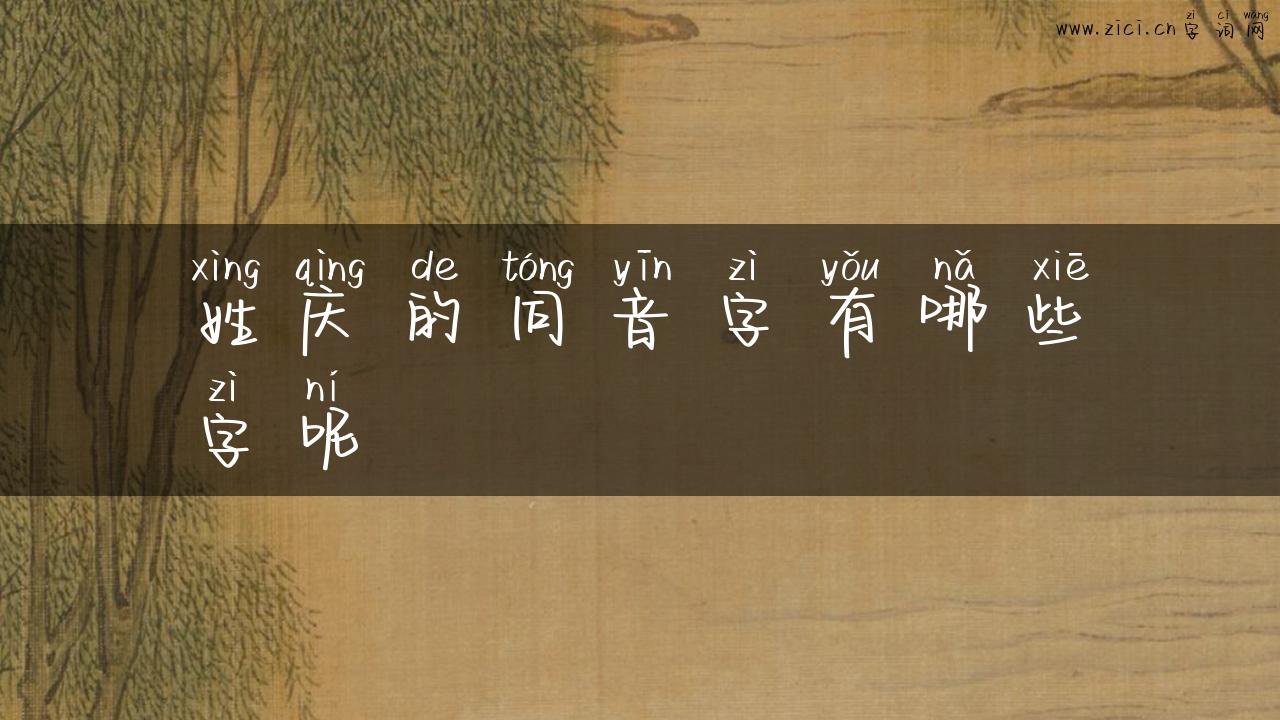 zì cí wǎng
www.zici.cn 字词网
xìng qìng de tóng yīn zì yǒu nǎ xiē
姓庆的同音字有哪些
zì ní
字呢